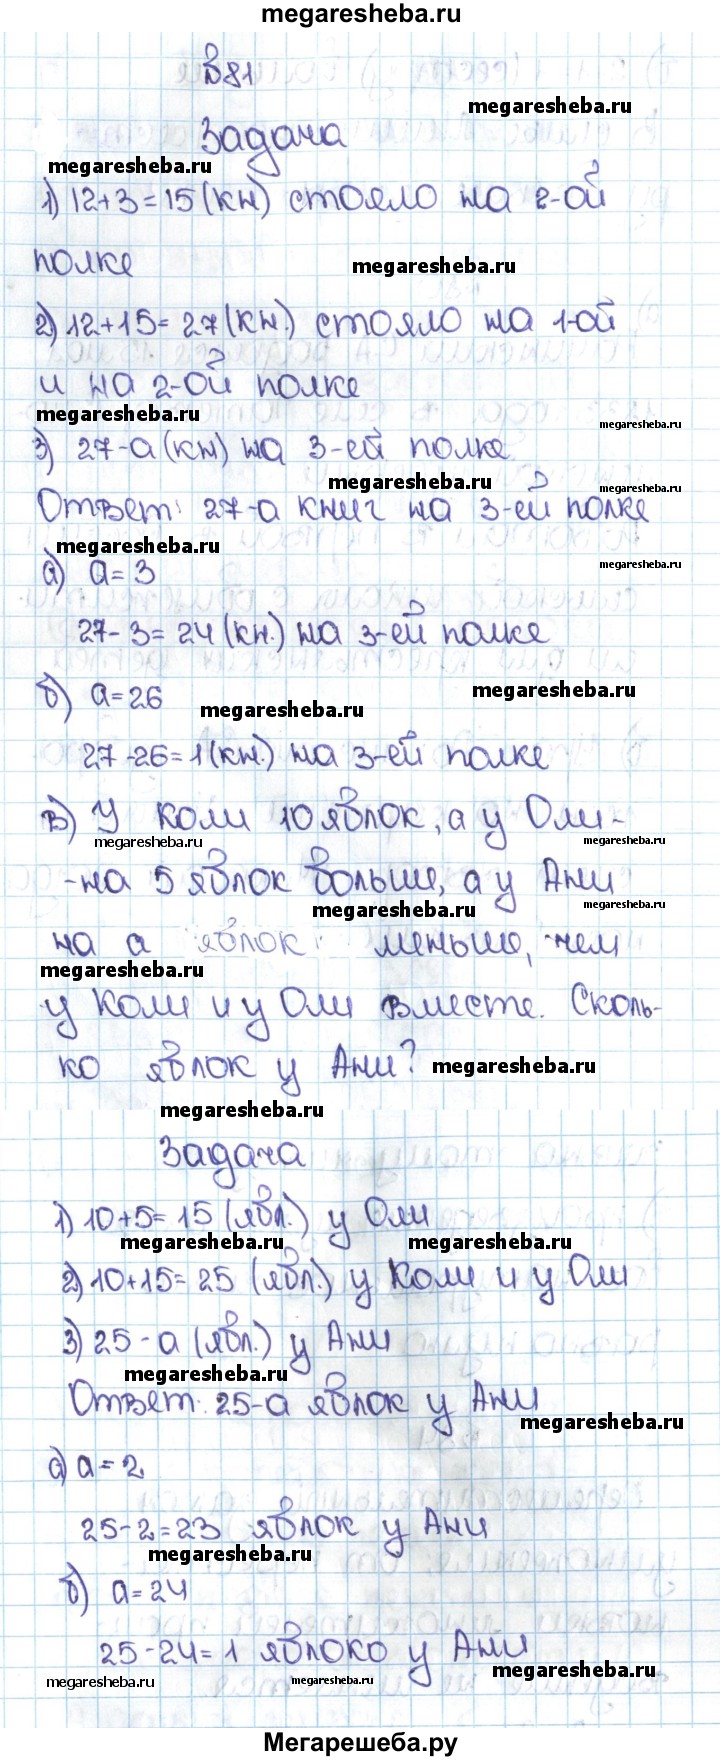 megaresheba.ru
В81
megaresheba.ru
Задача
megaresheba.ru
1) 12+3=15 (кн) стояло на 2-ой
полке
megaresheba.ru
2) 12+15=27 (кн.) стояло на 1-ой
и на 2-ой полке
megaresheba.ru
megaresheba.ru
3) 27-а (кн) на 3-ей полке
megaresheba.ru
megaresheba.ru
Ответ: 27-а книг на 3-ей полке
megaresheba.ru
megaresheba.ru
а) а=3
27-3=24 (кн.) на 3-ей полке
б) а=26
megaresheba.ru
megaresheba.ru
27-26=1 (кн.) на 3-ей полке
в) У Коли 10 яблок, а у Оли-
megaresheba.ru
megaresheba.ru
-на 5 яблок больше, а у Ани
megaresheba.ru
megaresheba.ru
на а яблок меньше, чем
megaresheba.ru
у Коли и у Оли вместе. Сколь-
ко яблок у Ани?
megaresheba.ru
megaresheba.ru
Задача
1) 10+5=15 (ябл.) у Оли
megaresheba.ru
megaresheba.ru
2) 10+15=25 (ябл.) у Коли и у Оли
3) 25-а (ябл.) у Ани
megaresheba.ru
Ответ: 25-а яблок у Ани
megaresheba.ru
а) а=2
25-2=23 яблок у Ани
megaresheba.ru
б) а=24
25-24=1 яблоко у Ани
megaresheba.ru
megaresheba.ru
megaresheba.ru
Мегарешеба.ру